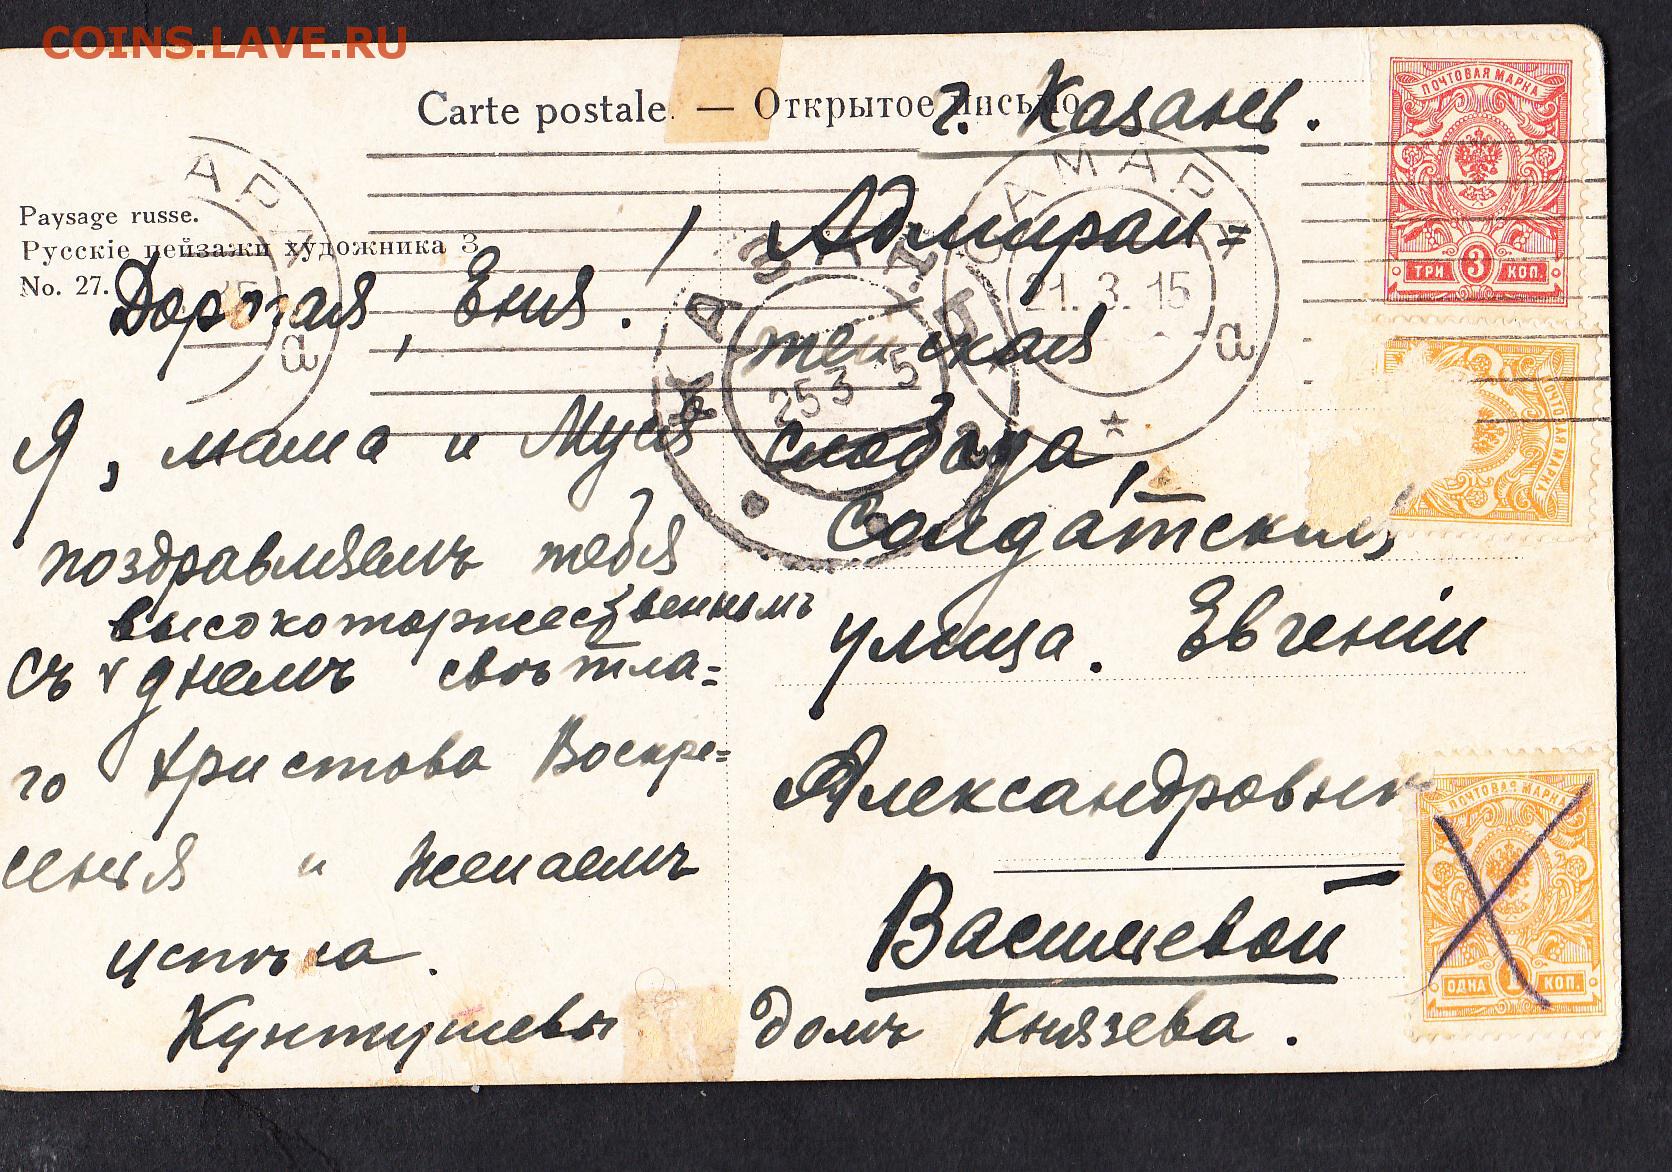 COINS.LAVE.RU
Carte postale. — Открытое письмо
Paysage russe.
Русскіе пейзажи художника З
No. 27.
Дорогая, Еня.
Я, мама и Муся
поздравляемъ тебя
высокоторжественнымъ
съ днемъ свѣтла=
го Христова Воскре=
сенія и желаемъ
успѣха.
Кунтушевы
г. Казань.
Адмирал=
тейская
слобода,
Солдатская
улица. Евгеніи
Александровн
Васильевой
домъ Князева.
САМАРА
21.3.15
а
*
АРА
15
а
КАЗАНЬ
25 3 5
ПОЧТОВАЯ МАРКА
ТРИ 3 КОП.
ПОЧТОВАЯ МАРКА
ПОЧТОВАЯ МАРКА
ОДНА 1 КОП.